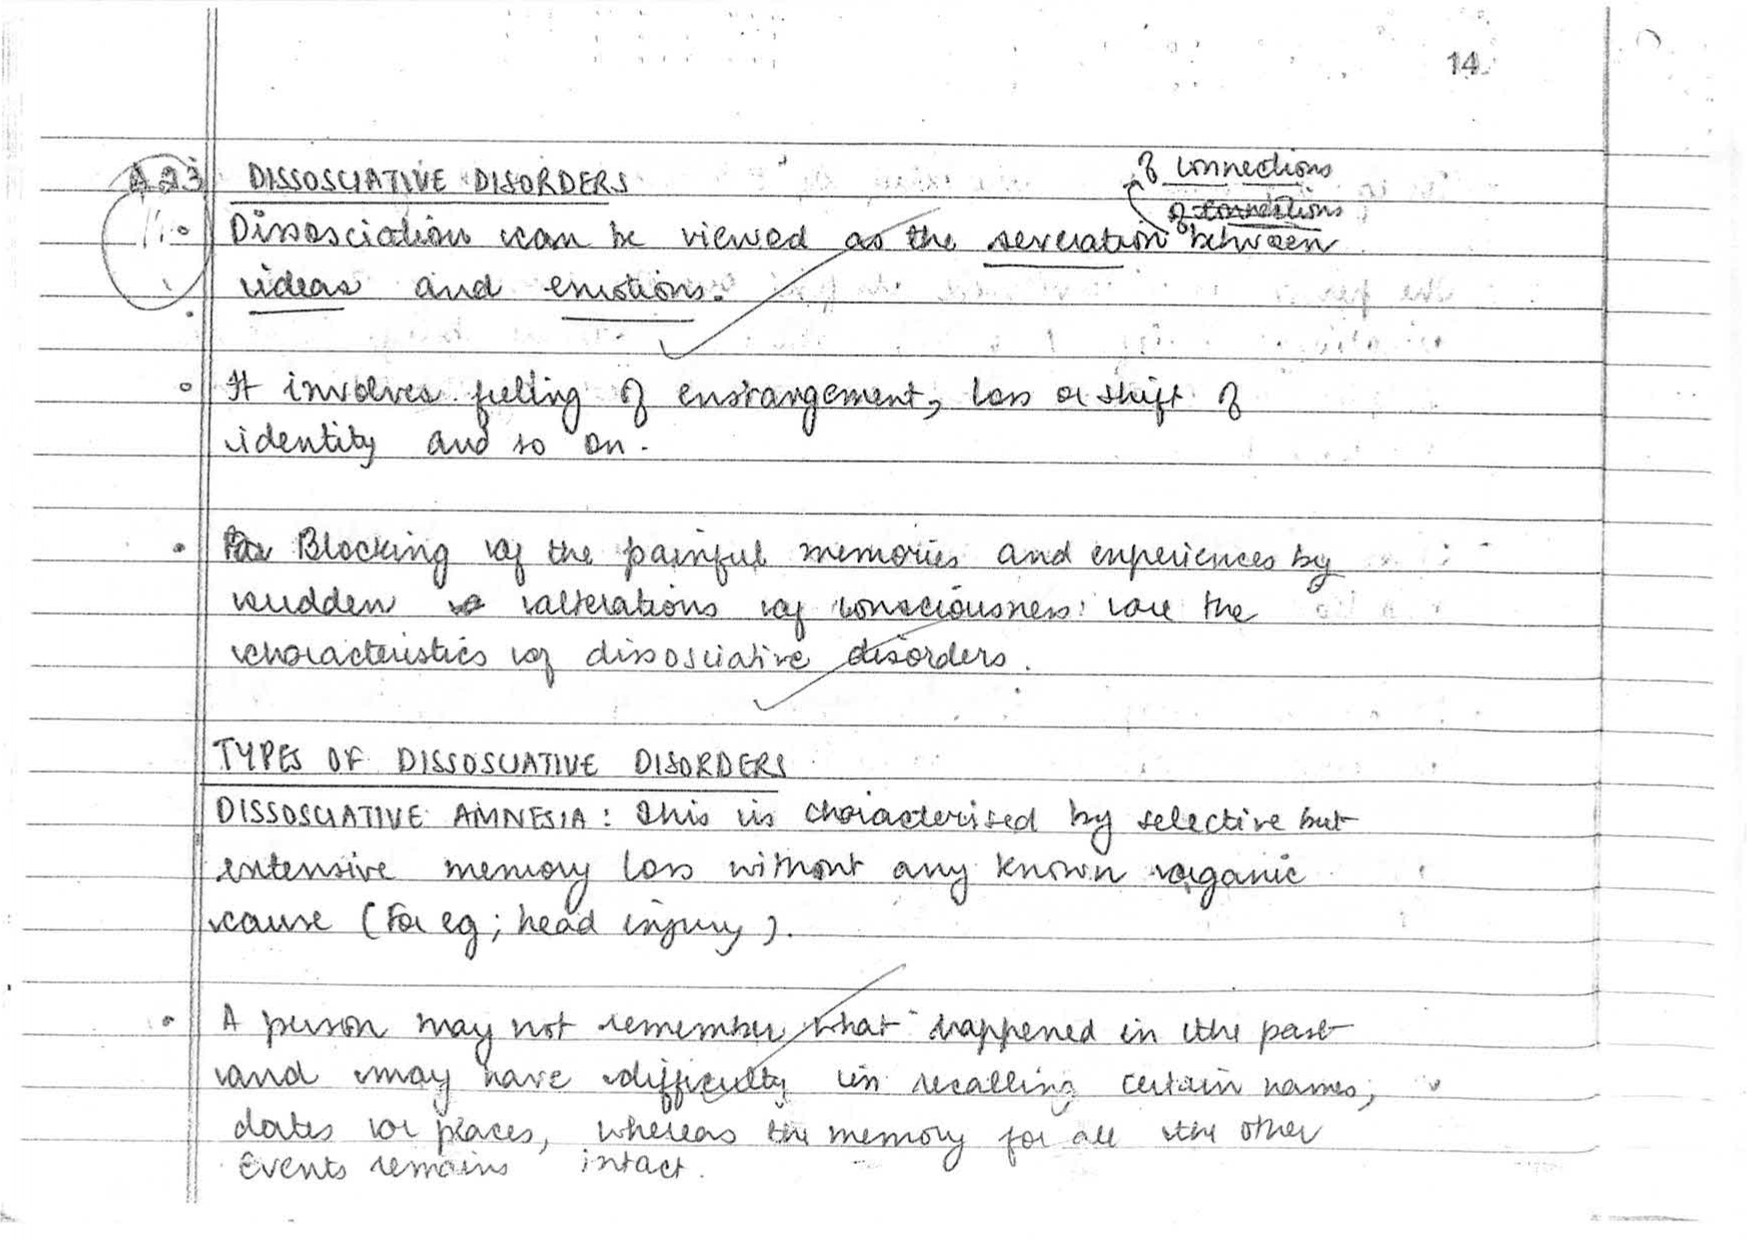 14
A23 DISSOSCIATIVE DISORDERS
of connections
of connections
Dissosciation can be viewed as the severation between
ideas and emotions.
It involves feeling of enstrangement, loss or shift of
identity and so on.
Blocking of the painful memories and experiences by
sudden alterations of consciousness are the
characteristics of dissosciative disorders.
TYPES OF DISSOSCIATIVE DISORDERS
DISSOSCIATIVE AMNESIA: This is characterised by selective but
extensive memory loss without any known organic
cause (For eg; head injury).
A person may not remember what happened in the past
and may have difficulty in recalling certain names,
dates or places, whereas the memory for all the other
Events remains intact.